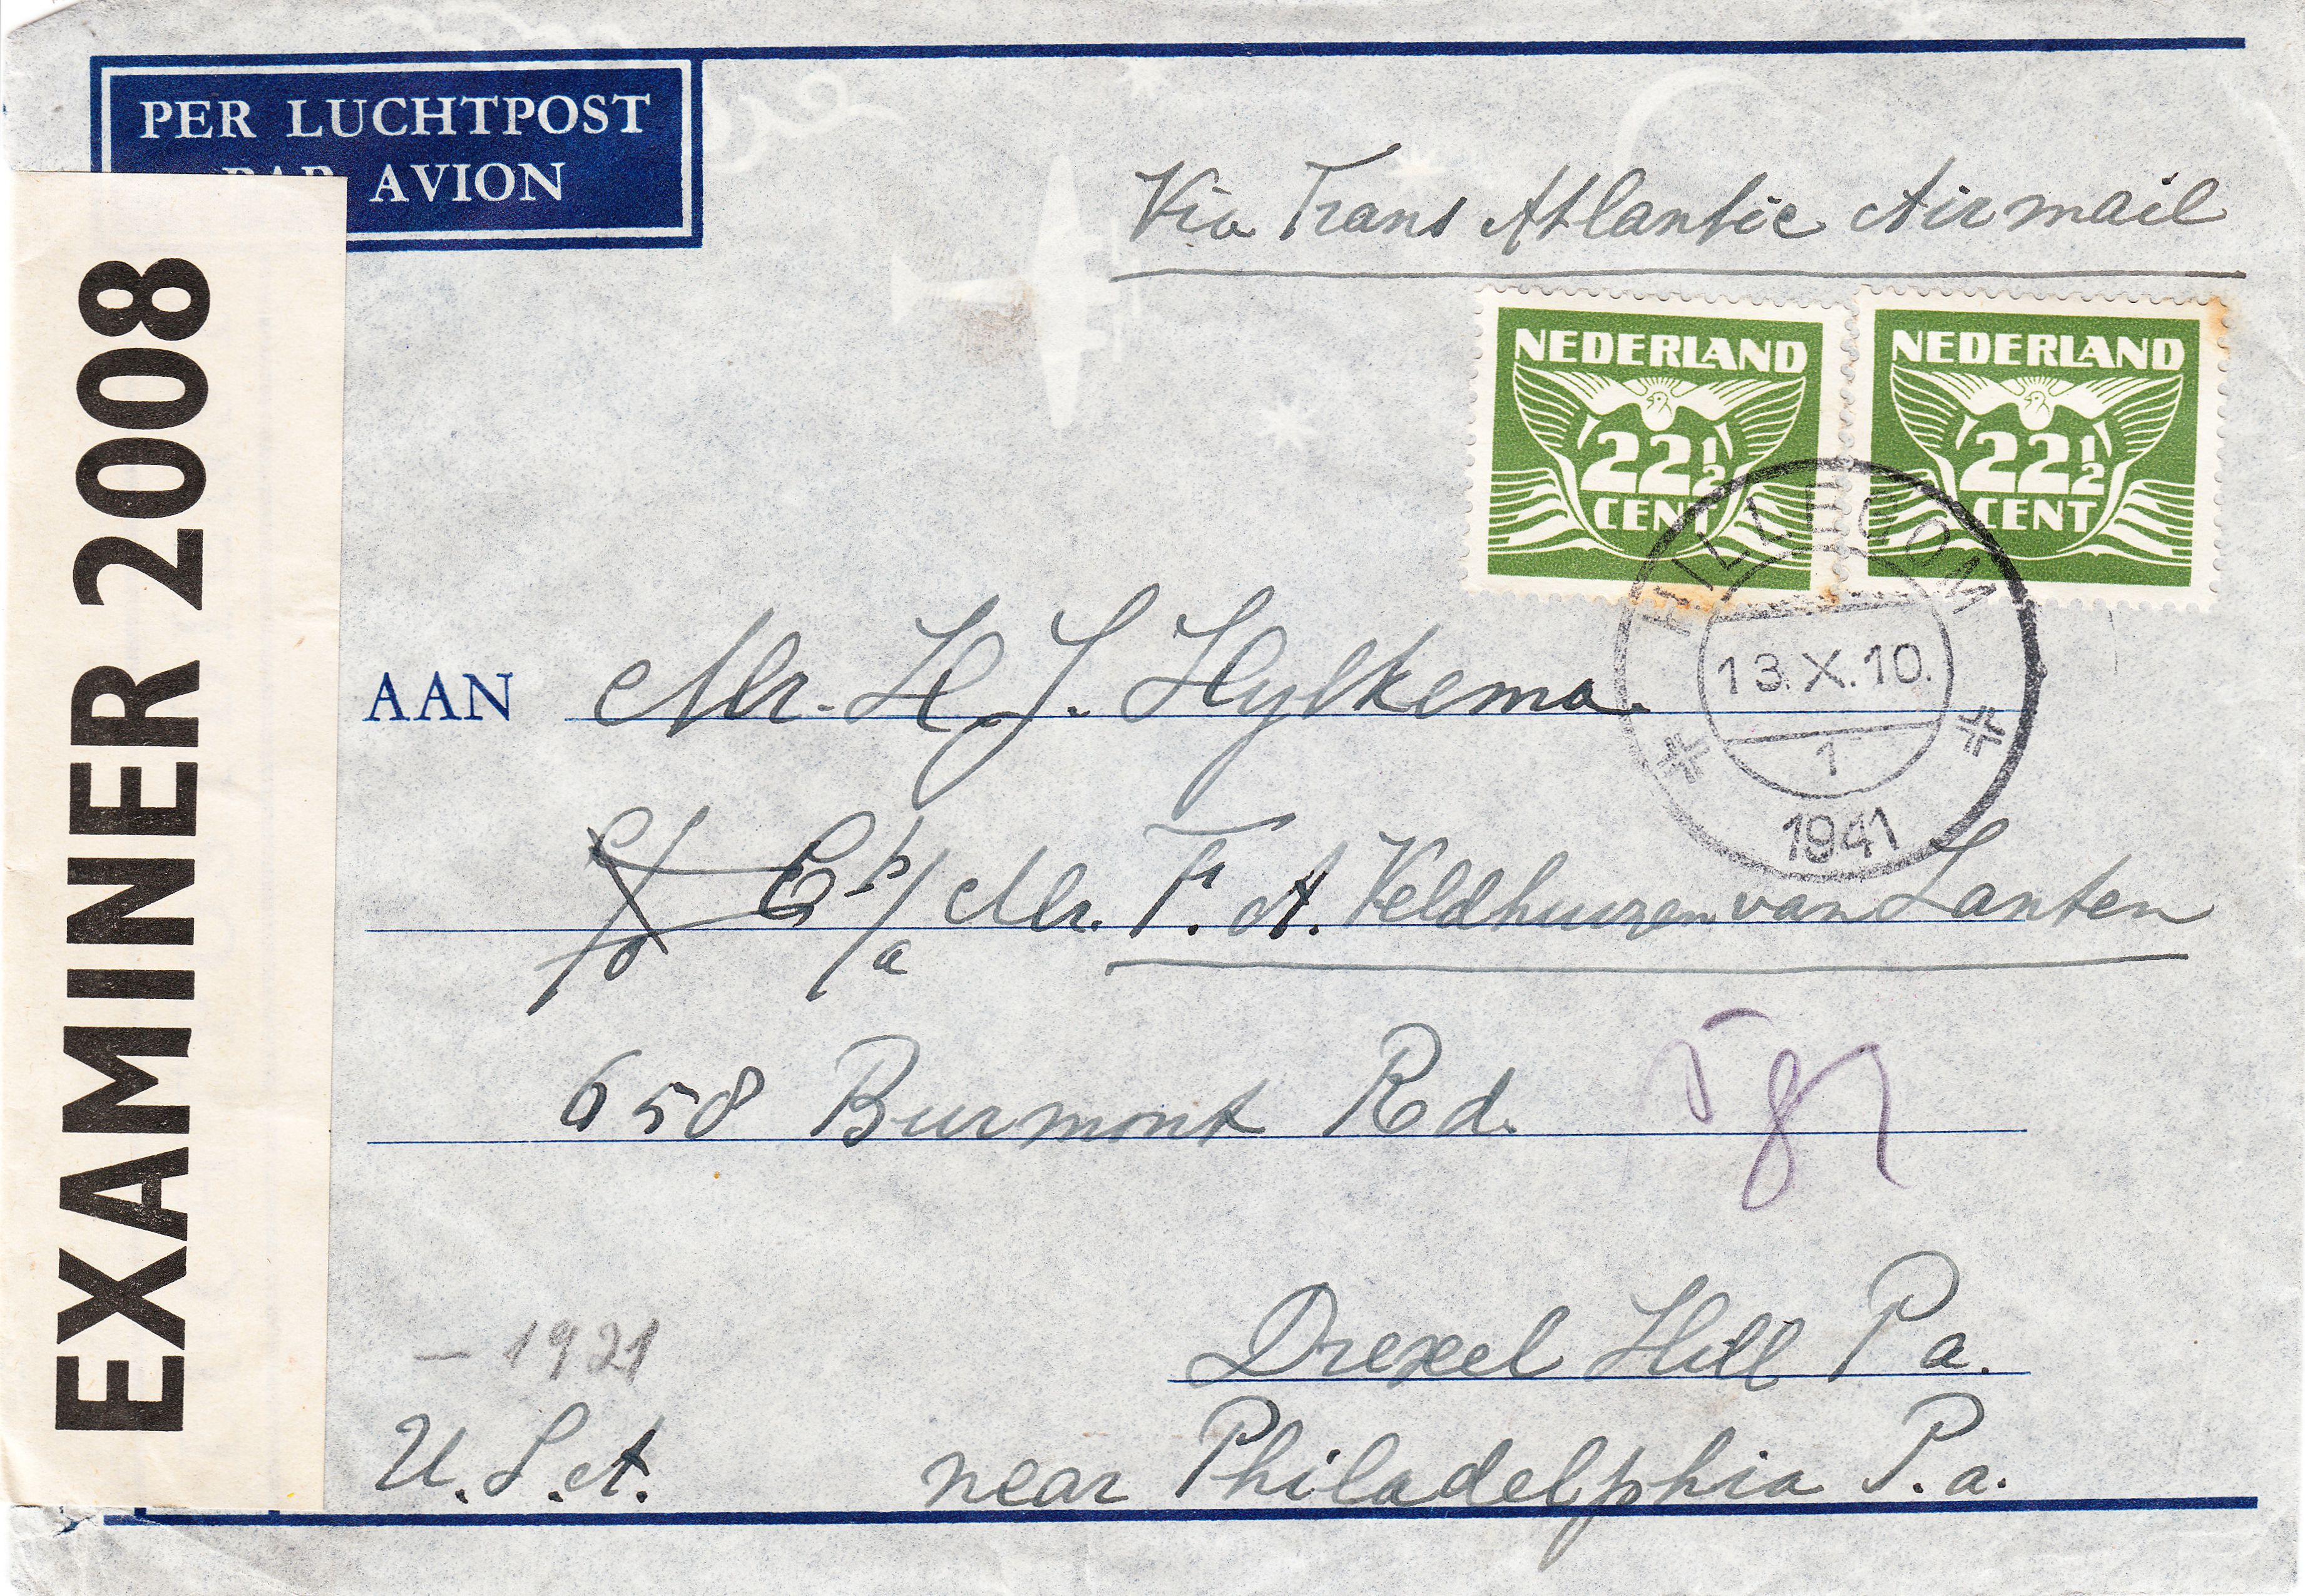 PER LUCHTPOST
PAR AVION
Via Trans Atlantic Airmail
EXAMINER 2008
NEDERLAND
22½
CENT
NEDERLAND
22½
CENT
HILLEGOM
13.X.10.
1
1941
AAN Mr. H J. Hylkema.
p/a Mr. F. A. Veldhuizen van Zanten
658 Burmont Rd.
Drexel Hill Pa.
- 1921
U.S.A. near Philadelphia P.a.